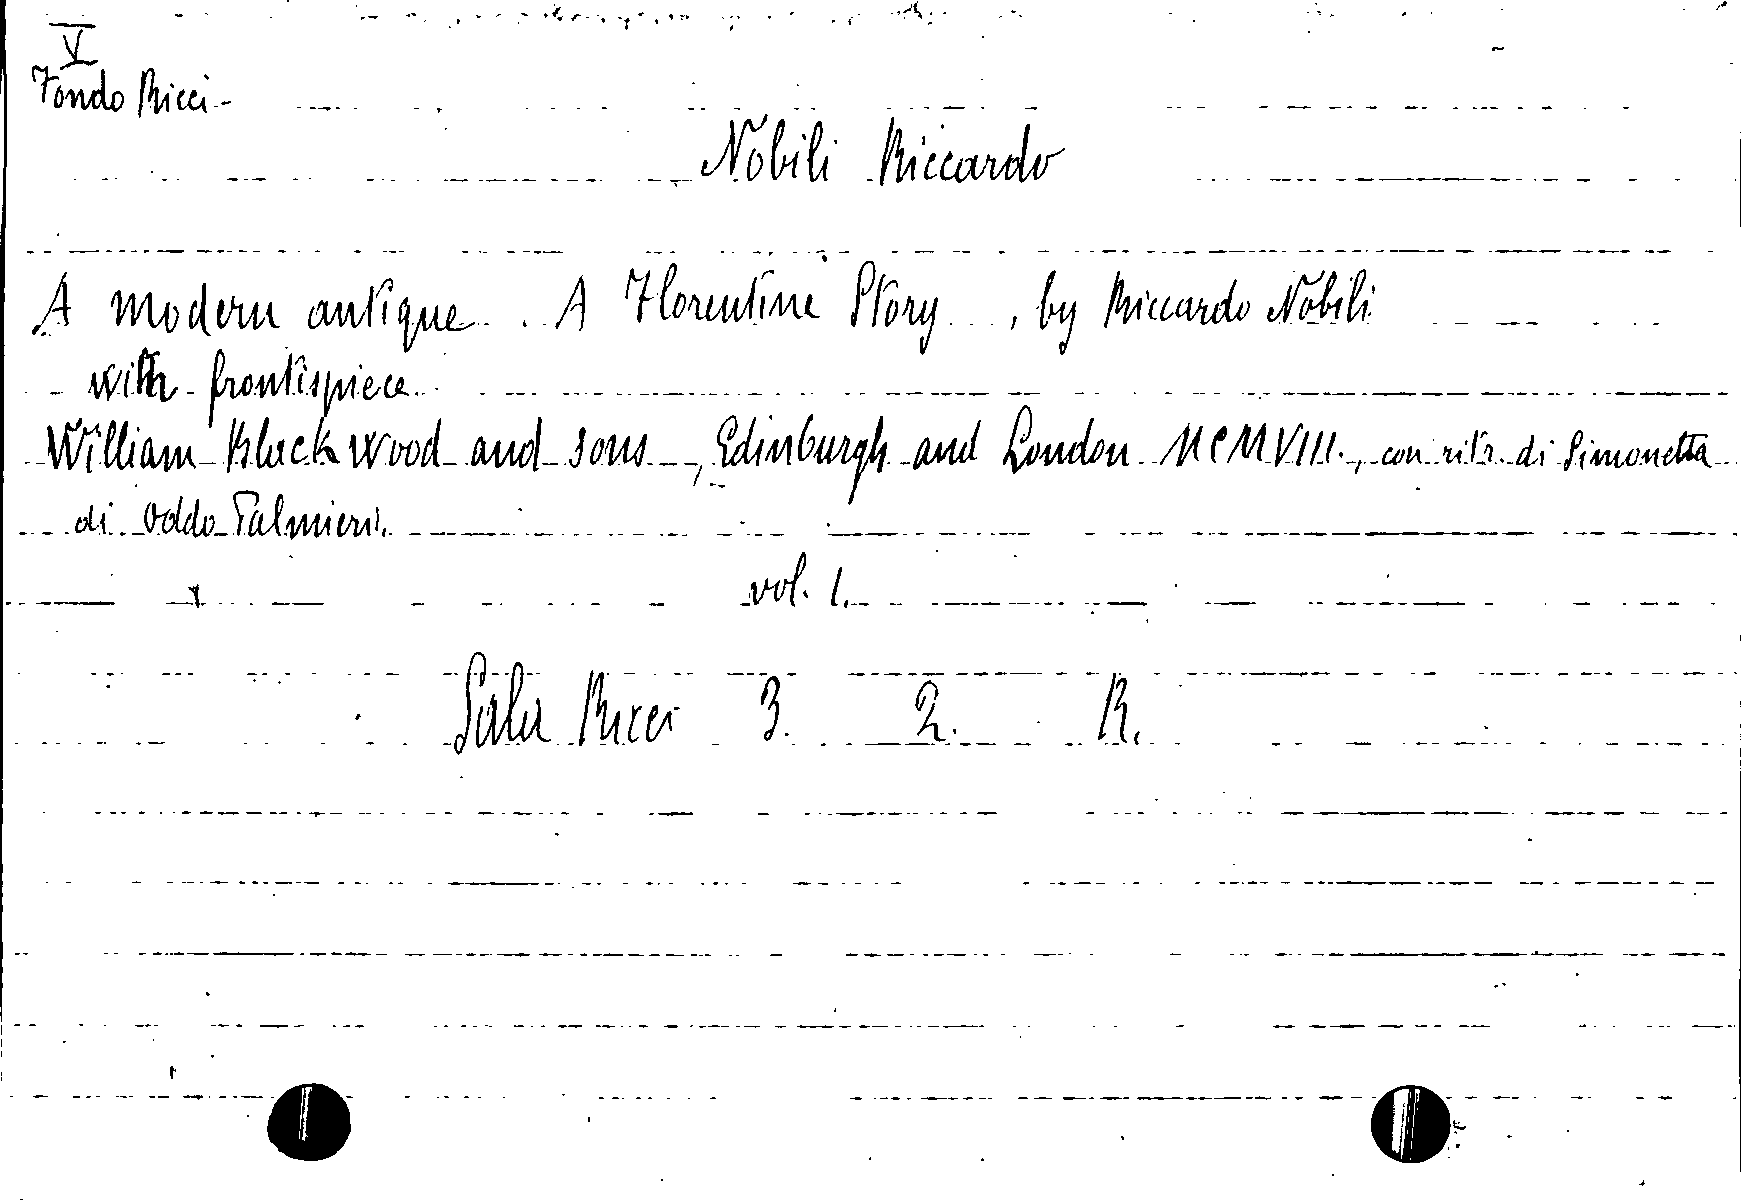 V
Fondo Ricci-
Nobili Riccardo
A modern antique. A Florentine Story, by Riccardo Nobili
with frontispiece
William Blackwood and sons, Edinburgh and London MCMVIII., con ritr. di Simonetta
di Oddo Palmieri.
vol. 1.
Sala Ricci 3. 2. R.